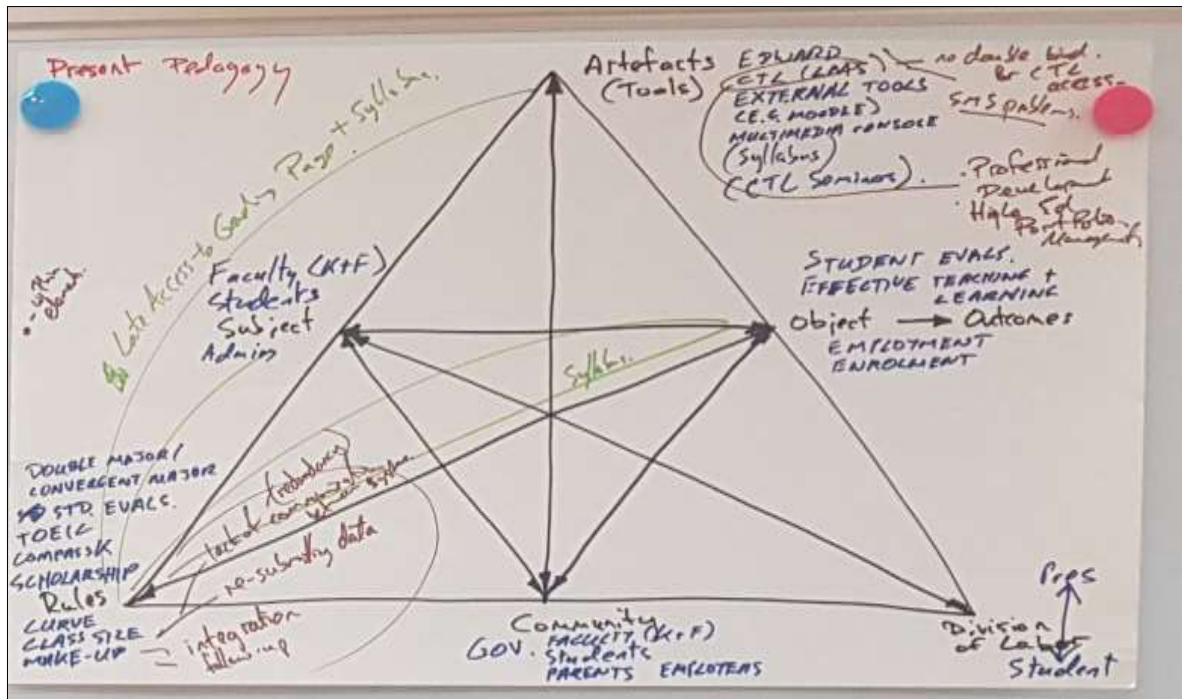 Present Pedagogy
Artefacts
(Tools)
EDWARD
CTL (LMS)
EXTERNAL TOOLS
(E.G. MOODLE)
MULTIMEDIA CONSOLE
(Syllabus)
(CTL Seminars).
no double bind.
for CTL
access
SMS problems.
· Professional
Development
· Higher
Portfolio
Management
Late Access to Grading Page + Syllabus.
Faculty (K+F)
Students
Subject
Admin
STUDENT EVALS.
EFFECTIVE TEACHING +
LEARNING
Object → Outcomes
EMPLOYMENT
ENROLMENT
Syllabus.
DOUBLE MAJOR/
CONVERGENT MAJOR
STD. EVALS.
TOEIC
COMPASSK
SCHOLARSHIP
Rules
CURVE
CLASS SIZE
MAKE-UP
(redundancy
lack of
re-submitting data
integration
follow-up
Community
GOV. FACULTY (K+F)
Students
PARENTS EMPLOYERS
Pres
Division
of Labor
Student